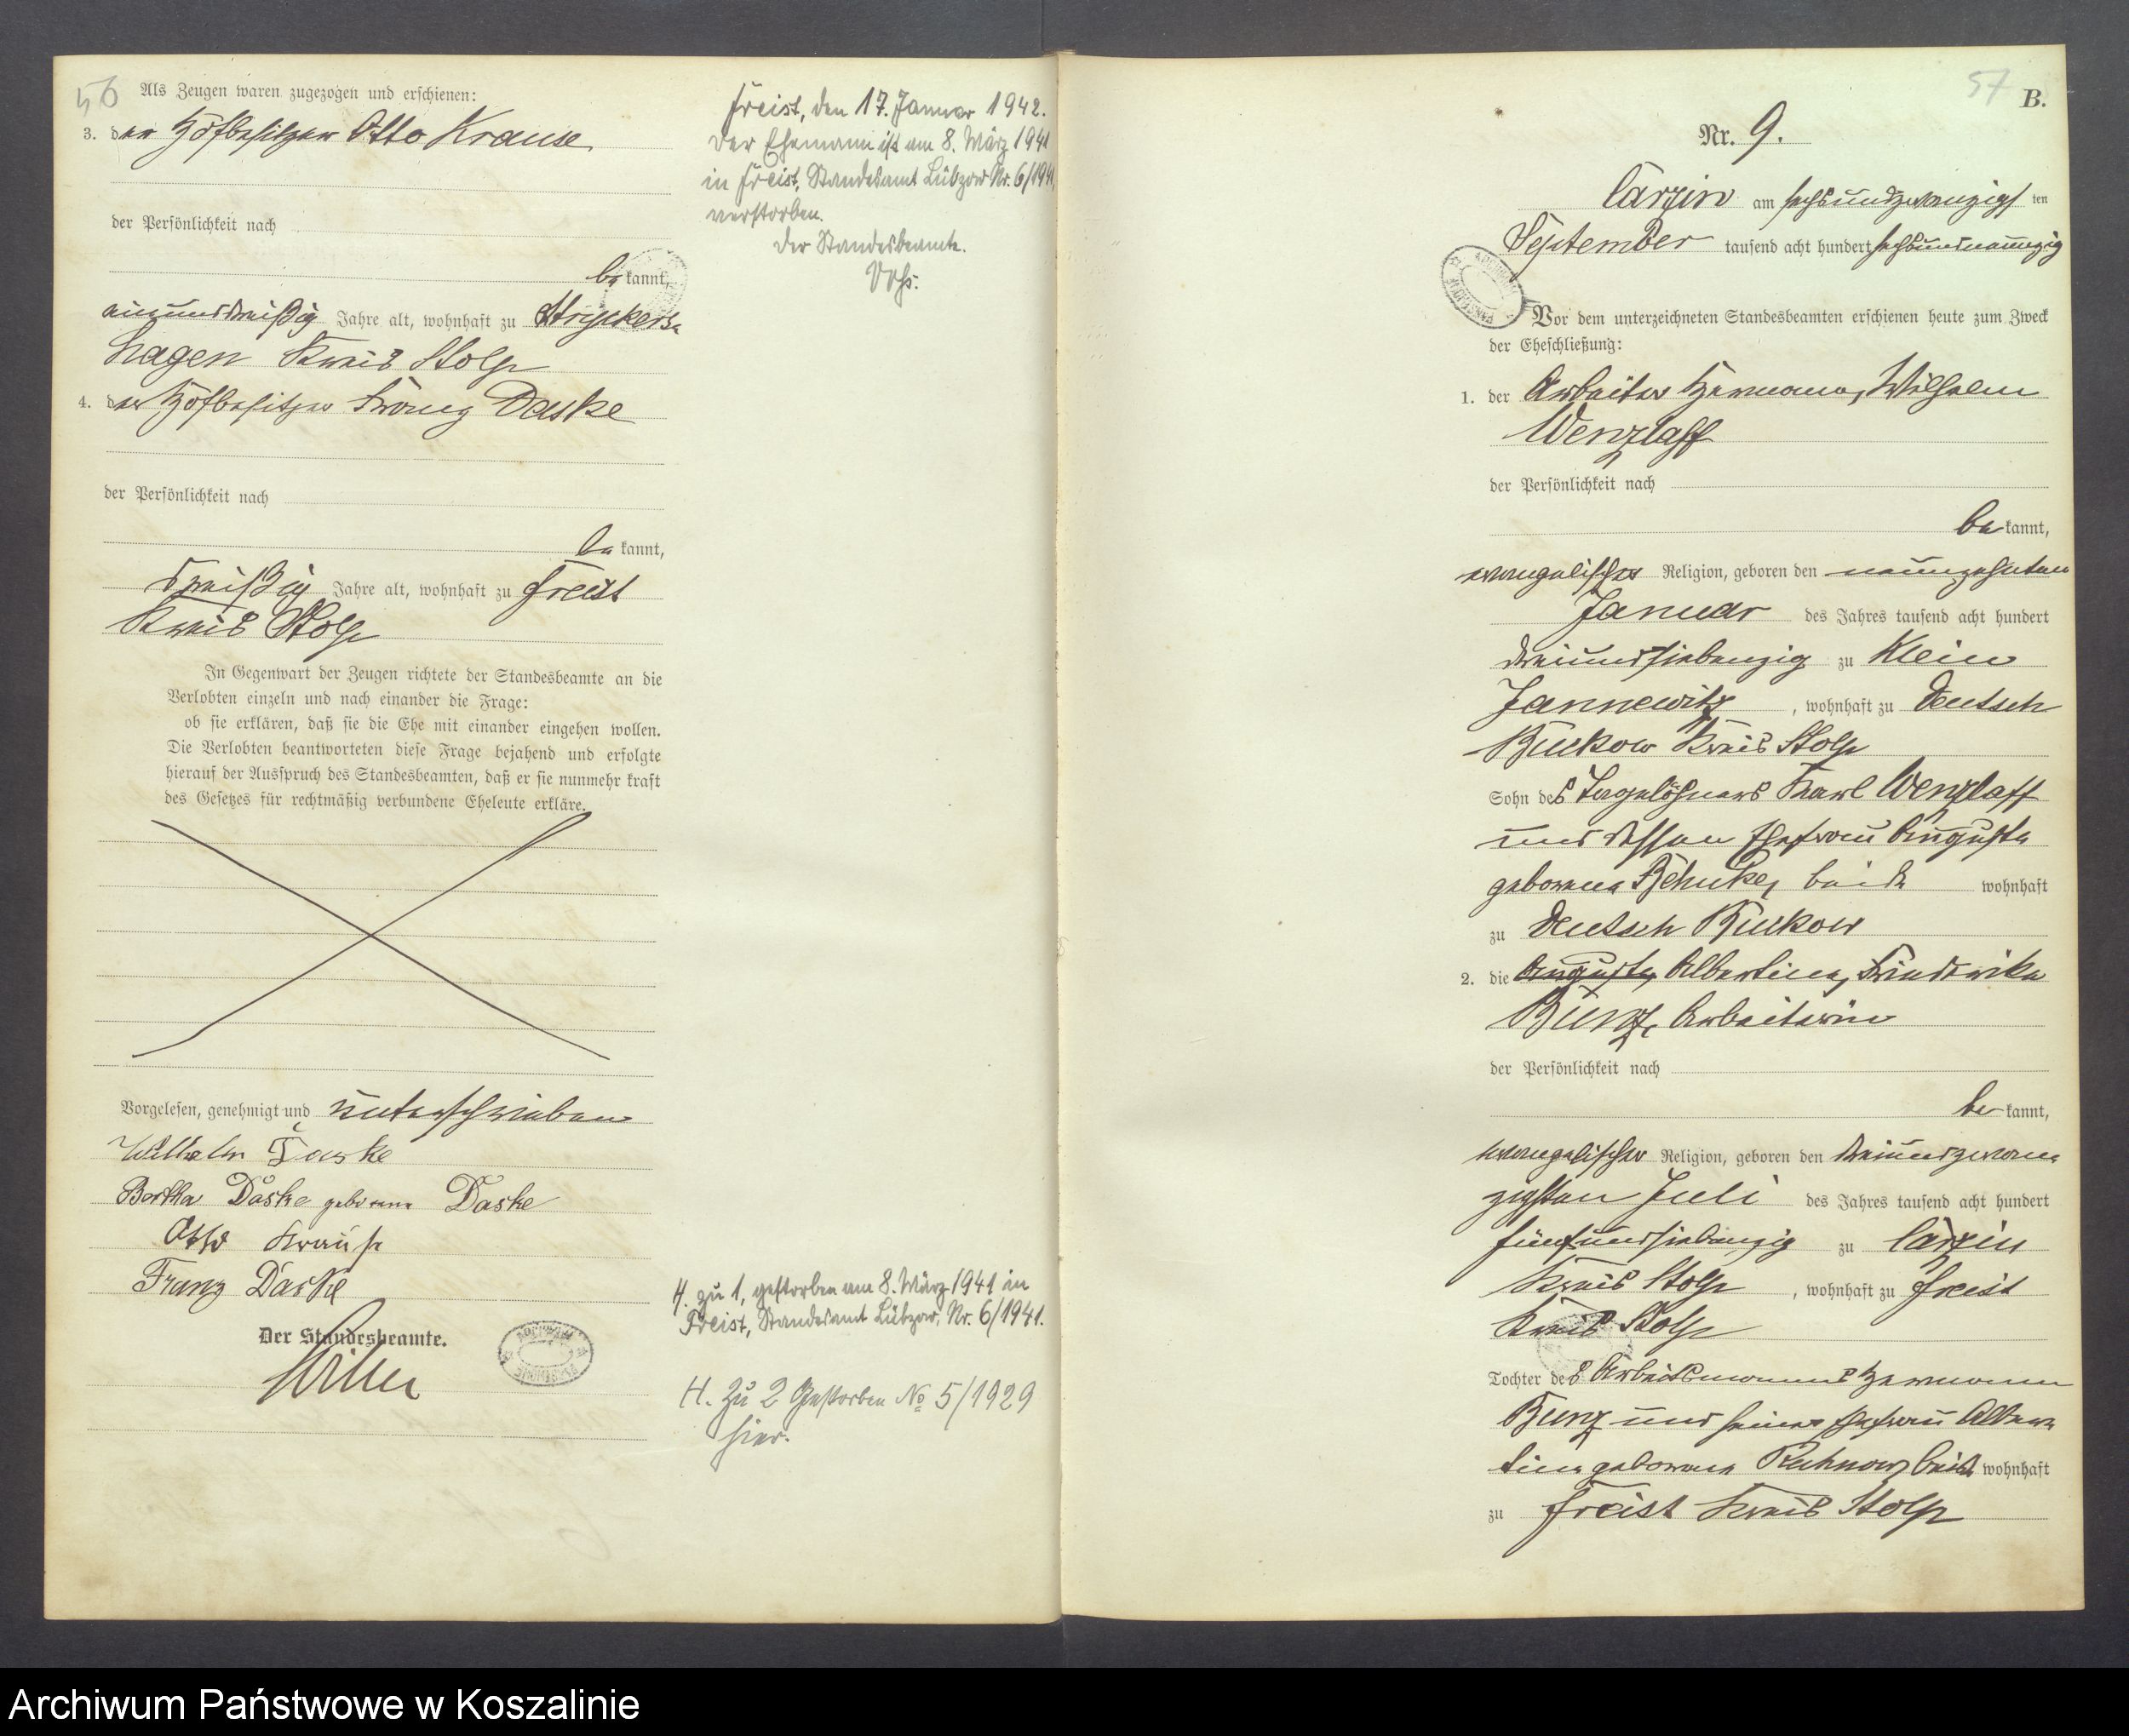 56
Als Zeugen waren zugezogen und erschienen:
3. der Hofbesitzer Otto Krause
der Persönlichkeit nach
bekannt,
einunddreißig Jahre alt, wohnhaft zu Stryckers-
hagen Kreis Stolp
4. der Hofbesitzer Franz Daske
der Persönlichkeit nach
bekannt,
dreißig Jahre alt, wohnhaft zu Freist
Kreis Stolp
In Gegenwart der Zeugen richtete der Standesbeamte an die
Verlobten einzeln und nach einander die Frage:
ob sie erklären, daß sie die Ehe mit einander eingehen wollen.
Die Verlobten beantworteten diese Frage bejahend und erfolgte
hierauf der Ausspruch des Standesbeamten, daß er sie nunmehr kraft
des Gesetzes für rechtmäßig verbundene Eheleute erkläre.
Vorgelesen, genehmigt und unterschrieben
Wilhelm Daske
Bertha Daske geborene Daske
Otto Krause
Franz Daske
Der Standesbeamte.
Freist, den 17. Januar 1942.
Der Ehemann ist am 8. März 1941
in Freist, Standesamt Lübzow Nr. 6/1941,
verstorben.
Der Standesbeamte.
H. zu 1, gestorben am 8. März 1941 in
Freist, Standesamt Lübzow, Nr. 6/1941.
H. Zu 2 Gestorben No 5/1929
hier.
57
B.
Nr. 9.
Carzin am sechsundzwanzigsten
September tausend acht hundert sechsundneunzig
Vor dem unterzeichneten Standesbeamten erschienen heute zum Zweck
der Eheschließung:
1. der Arbeiter Hermann, Wilhelm
Wenzlaff
der Persönlichkeit nach
bekannt,
evangelischer Religion, geboren den neunzehnten
Januar des Jahres tausend acht hundert
dreiundsiebenzig zu Klein
Jannewitz, wohnhaft zu Deutsch
Buckow Kreis Stolp
Sohn des Tagelöhners Karl Wenzlaff
und dessen Ehefrau Auguste
geborene Behnke, beide wohnhaft
zu Deutsch Buckow
2. die Auguste, Albertine, Friederike
Bunz, Arbeiterin
der Persönlichkeit nach
bekannt,
evangelischer Religion, geboren den dreiundzwan-
zigsten Juli des Jahres tausend acht hundert
fünfundsiebenzig zu Carzin
Kreis Stolp, wohnhaft zu Freist
Kreis Stolp
Tochter des Arbeitsmanns Hermann
Bunz und seiner Ehefrau Alber-
tine geborene Kuhnow, beide wohnhaft
zu Freist Kreis Stolp
Archiwum Państwowe w Koszalinie